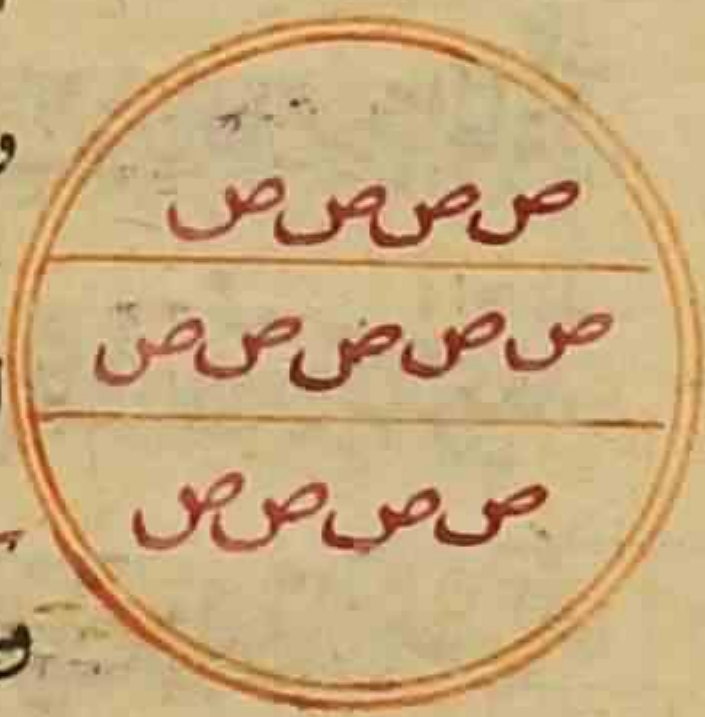 ص ص ص ص
ص ص ص ص ص
ص ص ص ص